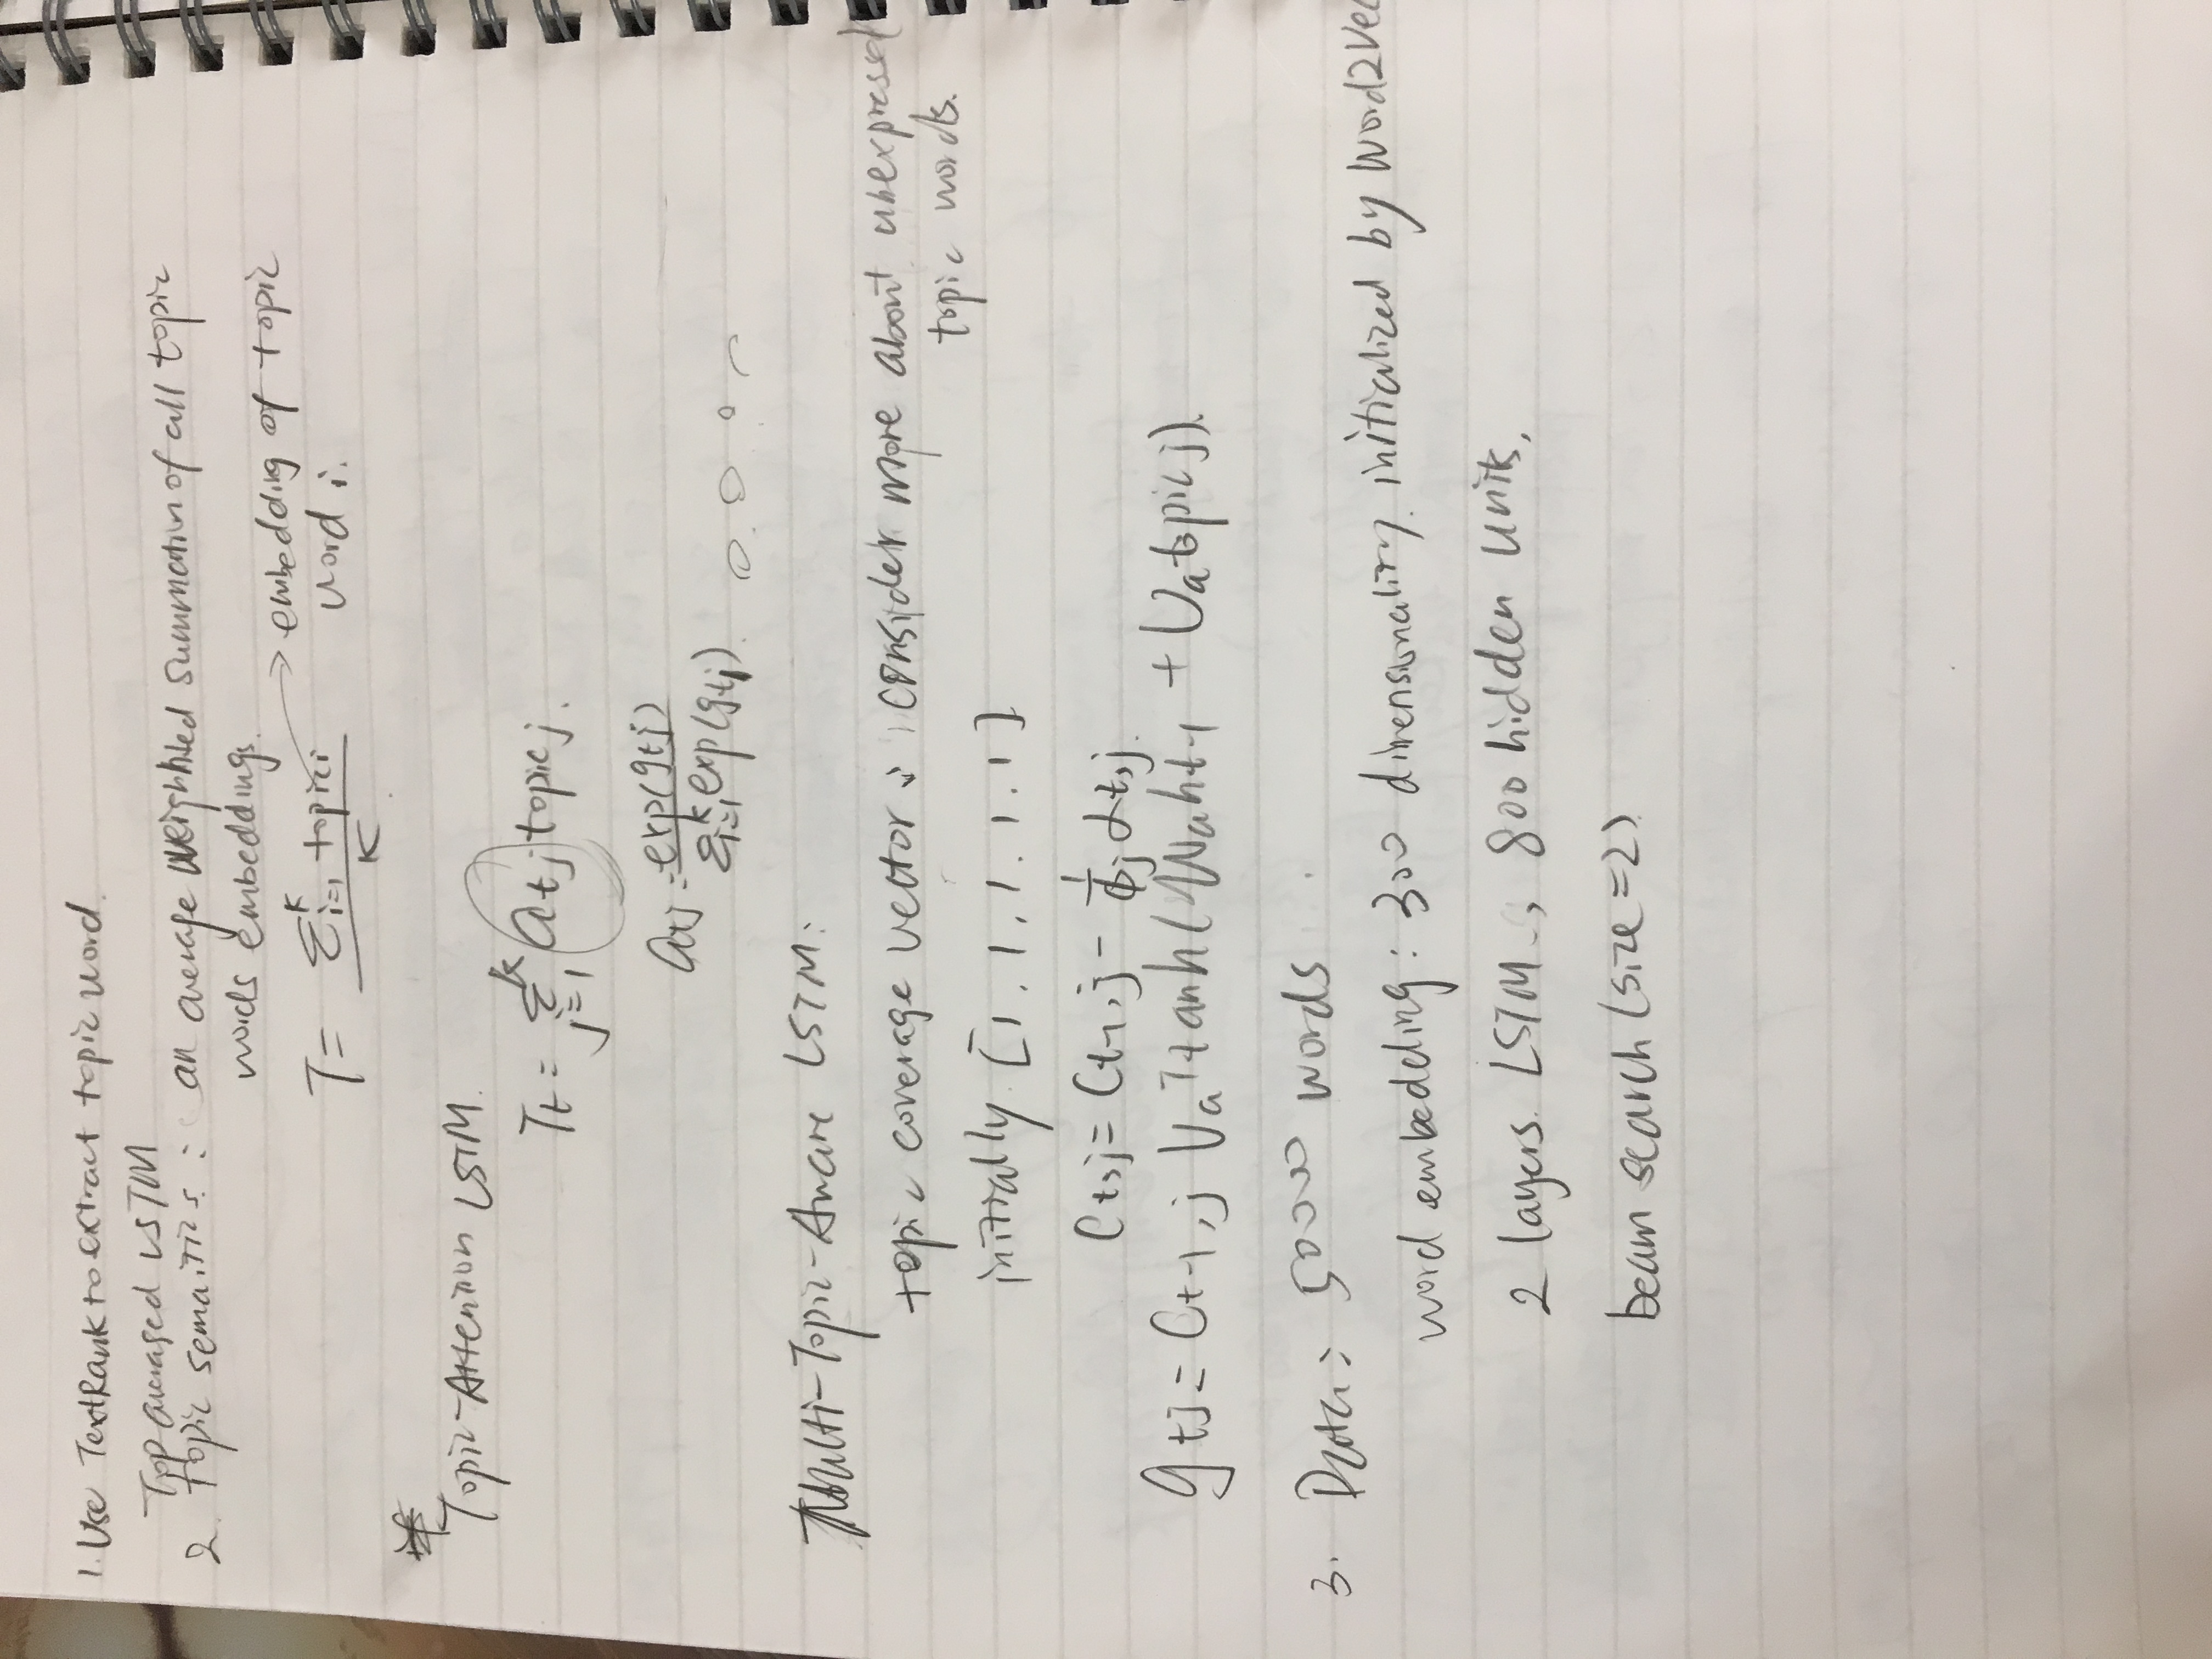 1. Use TextRank to extract topic word.
Top averaged LSTM
2. topic semaitics : an average weighted summation of all topic
words embeddings.
T = Σ_{i=1}^{K} topic_i / K → embedding of topic
word i.
Topic-Attention LSTM.
T_t = Σ_{j=1}^{K} a_{tj} topic_j.
a_{tj} = exp(g_{tj}) / Σ_{i=1}^{K} exp(g_{tj})
Multi-Topic-Aware LSTM:
topic coverage vector : consider more about unexpressed
topic words.
initially [1, 1, 1, 1, 1]
C_{t,j} = C_{t-1,j} - 1/ϕ_j α_{t,j}.
g_{tj} = C_{t-1,j} V_a^T tanh(W_a h_{t-1} + U_a topic_j).
3. Data: 50000 words
word embedding: 300 dimensionality. initialized by Word2Vec
2 layers. LSTM, 800 hidden units,
beam search (size=2)